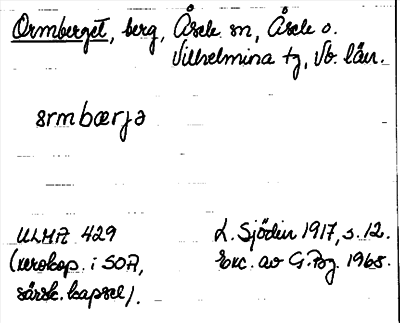 Ormberget, berg, Åsele sn, Åsele o.
Vilhelmina tg, Vb. län.
ormbærja
ULMA 429
(xerokop. i SOA,
särsk. kapsel).
L. Sjödin 1917, s. 12.
Exc. av G. Bg. 1965.